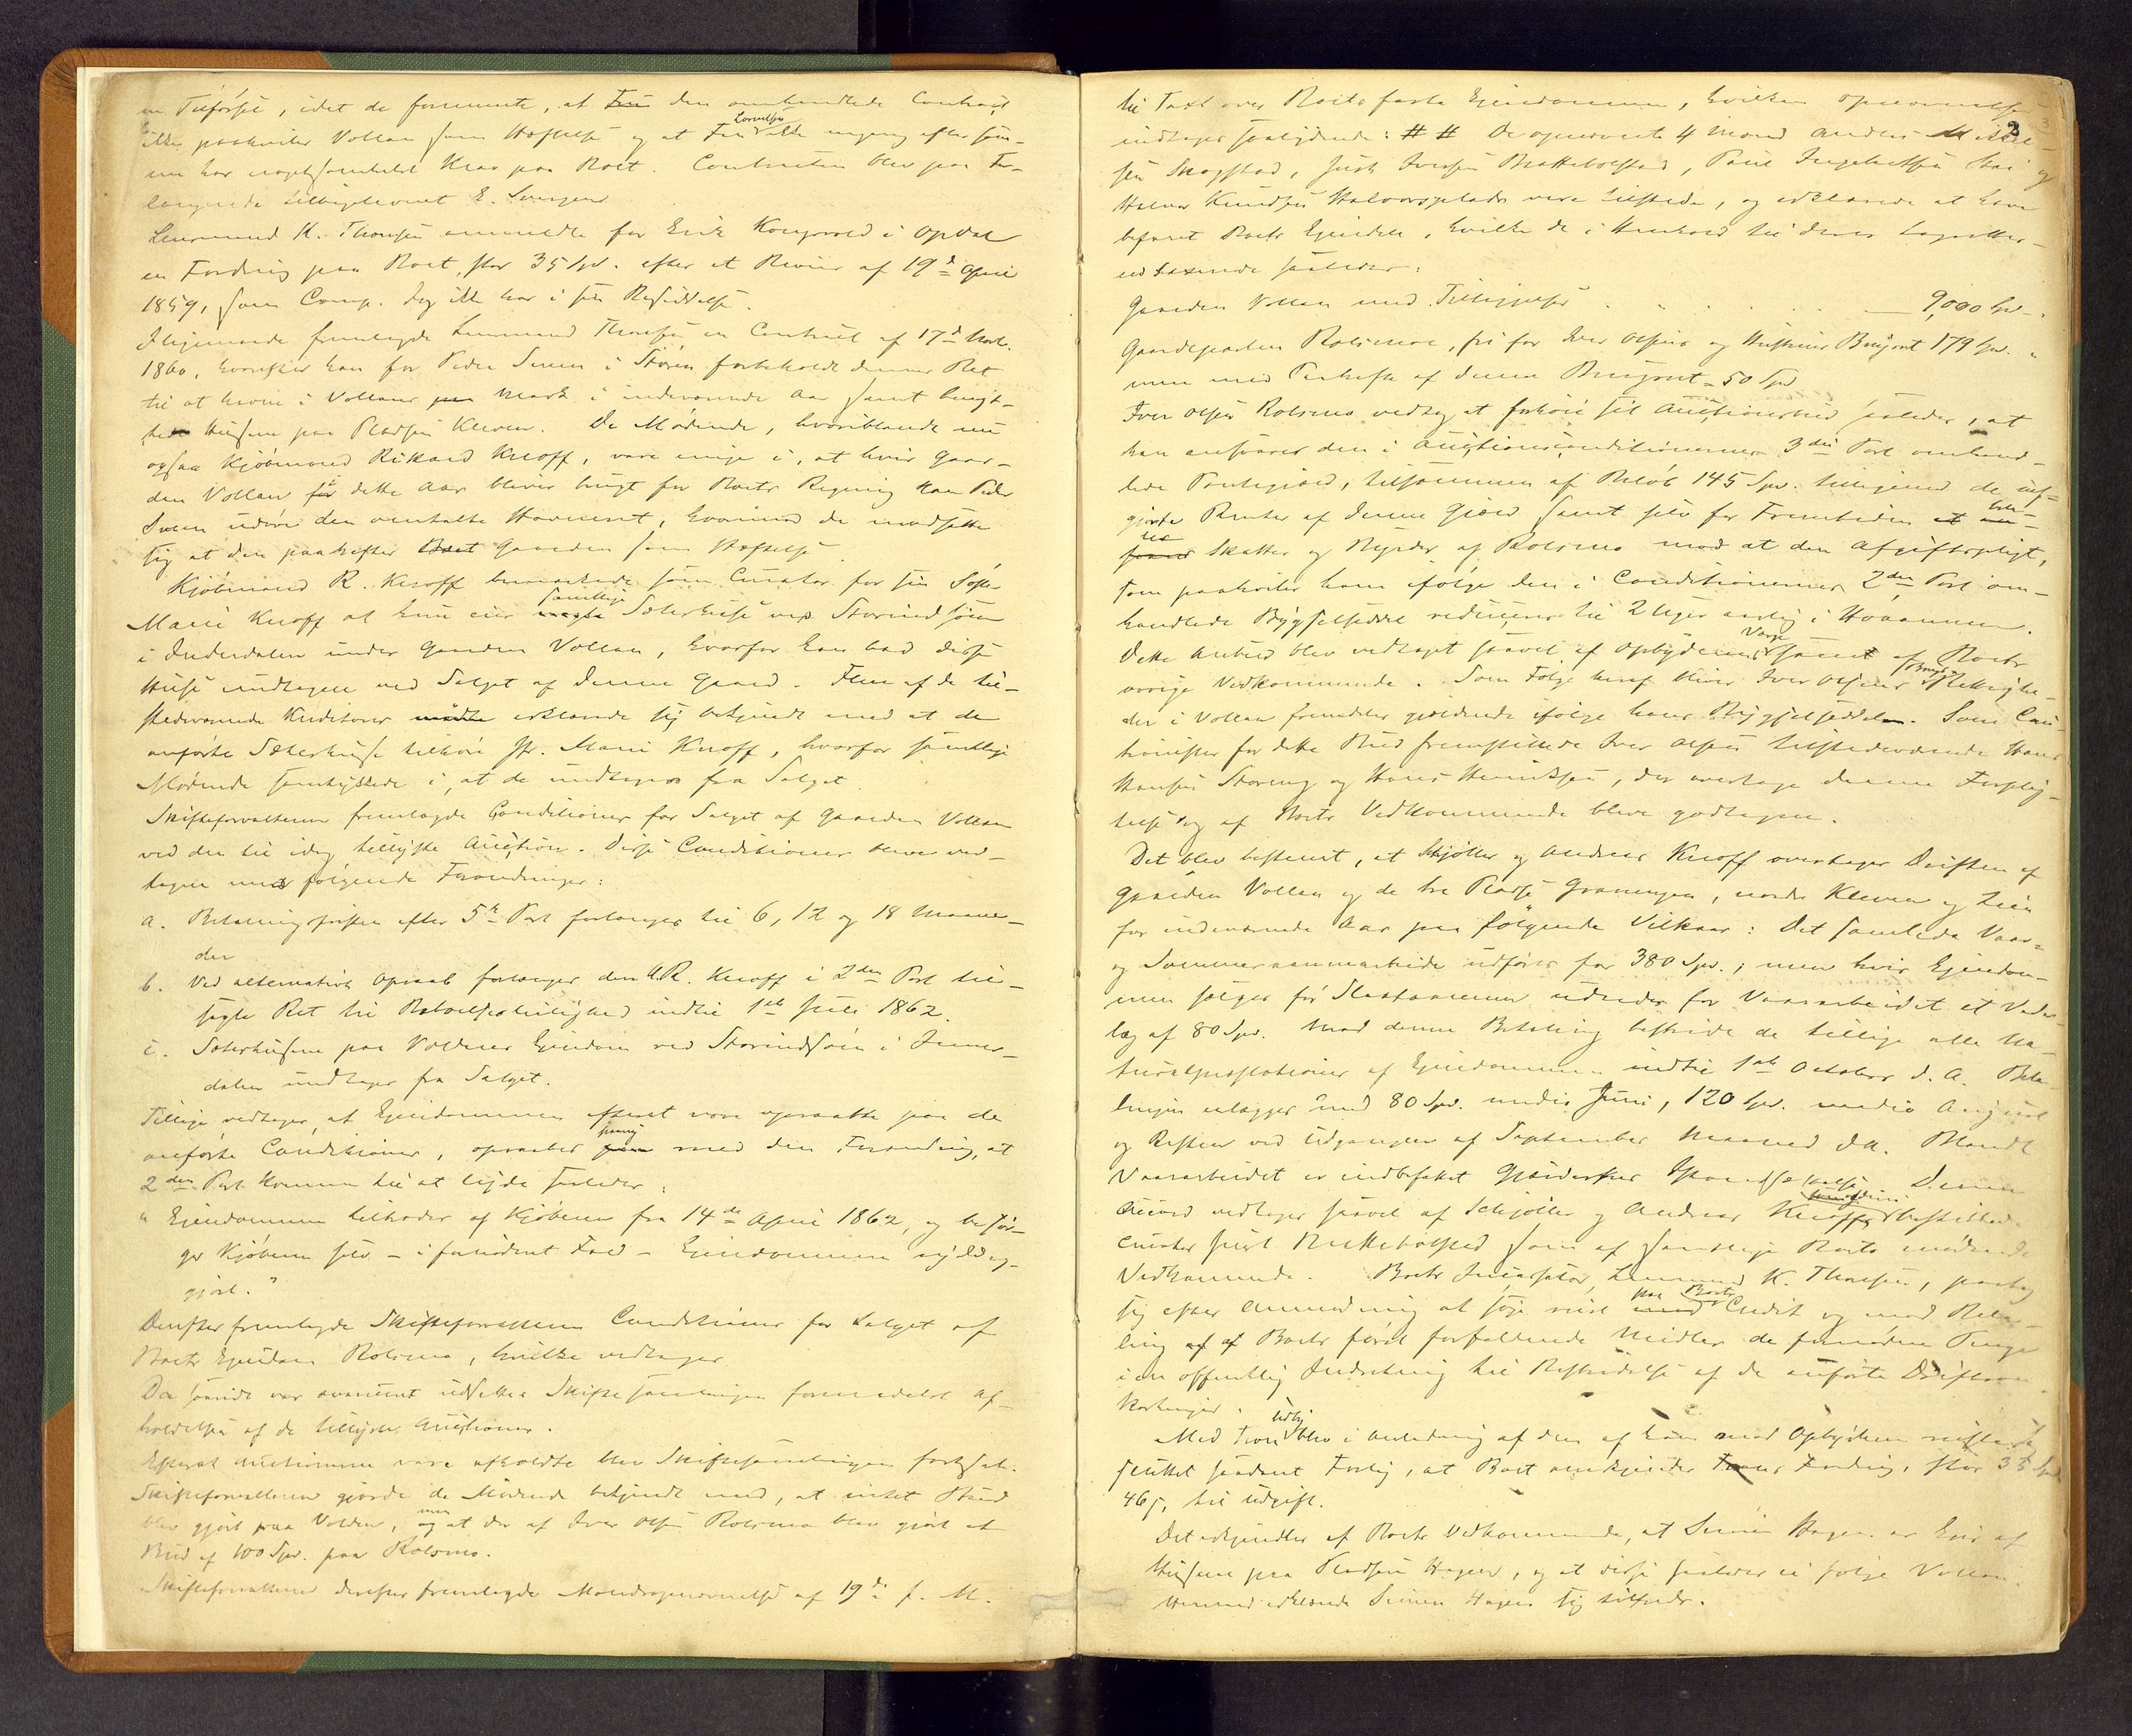 en Tilførsel, idet de formeente, at den omhandlede Contract
ikke paahviler Vollan som Heftelse og at Fru Lorentzen ikke engang efter sam-
me har nogetsomhelst Krav paa Boet. Contracten blev paa For-
langende tilbageleveret E. Svensen
Lensmand K. Thonsen anmeldte for Erik Kongsvold i Opdal
en Fordring paa Boet, stor 35 Spd. efter et Bevis af 19de April
1859, som Comp. dog ikke har i sin Besiddelse.
Iligemaade fremlagde Lensmand Thonsen en Contract af 17de Novb.
1860, hvorefter han for Peder Svensen i Støren forbeholdt denne Ret
til at havne i Vollans Mark i indeværende Aar samt benyt-
tede Husene paa Pladsen Kleven. De Mødende, hvoriblandt nu
ogsaa Kjøbmand Rikard Knoff, vare enige i, at hvis Gaar-
den Vollan for dette Aar bliver brugt for Boets Regning kan Peder
Svensen udøve den omtalte Havneret, hvorimod de modsætte
sig at den paahefter Gaarden som Heftelse.
Kjøbmand R. Knoff bemærkede som Curator for sin Søster
Marie Knoff at hun eier samtlige Sæterhuse ved Storindsøen
i Inderdalen under Gaarden Vollan, hvorfor han bad disse
Huse undtagne ved Salget af denne Gaard. Flere af de til-
stedeværende Kreditorer erklærede sig bekjendt med at de
anførte Sæterhuse tilhøre Jfr. Marie Knoff, hvorfor samtlige
Mødende samtykkede i, at de undtages fra Salget.
Skifteforvalteren fremlagde Conditioner for Salget af Gaarden Vollan
ved den til idag tillyste Auction. Disse Conditioner bleve ved-
tagne med følgende Forandringer:
a. Betalingsfristen efter 5te Post forlænges til 6, 12 og 18 Maane-
der
b. Ved alternativt Opraab forlænges den A.R. Knoff i 2den Post til-
sagte Ret til Beboelsesleilighed indtil 1ste Juli 1862.
c. Sæterhusene paa Voldens Eiendom ved Storindsøen i Inner-
dalen undtages fra Salget.
Tillige vedtoges, at Ejendommen efterat være opraabt paa de
anførte Conditioner, opraabes paany med den Forandring, at
2den Post kommer til at lyde saaledes:
"Ejendommen tiltrædes af Kjøberen fra 14de April 1862, og besør-
ger Kjøberen selv - i fornødent Fald - Eiendommen ryddig-
gjort."
Derefter fremlagde Skifteforvalteren Conditioner for Salget af
Boets Ejendom Rolsmo, hvilke vedtoges
Da saavidt var avanceret udsattes Skiftesamlingen formedelst Af-
holdelsen af de tillyste Auctioner.
Efterat Auctionerne vare afholdte blev Skiftesamlingen fortsat.
Skifteforvalteren gjorde de Mødende bekjendt med, at intet Bud
blev gjort paa Volden, men at der af Iver Olsen Rolsmo blev gjort et
Bud af 100 Spd. paa Rolsmo.
Skifteforvalteren derefter fremlagde Mandsopnævnelse af 19de f. M.
3
2
til Taxt over Boets faste Ejendomme, hvilken Opnævnelse
indtages saalydende: # # De opnævnte 4 Mænd Anders Mikkel-
sen Skogstad, Just Iversen Brattebolstad, Paul Ingebretsen Kai og
Halvor Knudsen Halvorsplads vare tilstede, og erklærede at have
befaret Boets Ejendele, hvilke de i Henhold til deres Lagrettes-
ed taxerede saaledes:
Gaarden Vollan med Tilliggelser . . . . . . 9,000 Spd. .
Gaardeparten Rolsmoe, fri for Iver Olsens og Hustrues Brugsret 179 Spd. .
men med Paahefte af denne Brugsret - 50 Spd
Iver Olsen Rolsmo vedtog at forhøie sit Auctionsbud saaledes, at
han ansvarer den i Auctionsconditionernes 3die Post omhand-
lede Pantegjæld, tilsammen af Beløb 145 Spd. tilligemed de
Renter af denne Gjæld samt selv for Fremtiden
Skatter og Byrder af Rolsmo mod at den Afgiftspligt,
som paahviler ham ifølge den i Conditionernes 2den Post om-
handlede Bygselseddel reduceres til 2 Uger aarlig i Høaannen.
Dette Anbud blev vedtaget saavel af Opbydernes Værge samt af Boets
øvrige Vedkommende. Som Følge heraf bliver Iver Olsens Brugsrettighe-
der i Vollan fremdeles gjældende ifølge hans Bygselseddel. Som Cau-
tionister for dette Bud fremstillede Iver Olsen tilstedeværende Hans
Hansen Storeng og Hans Henriksen, der overtoge denne Forplig-
telse og af Boets Vedkommende bleve godtagne.
Det blev bestemt, at Schjøller og Andreas Knoff overtager Driften af
Gaarden Vollan og de tre Pladse Grønningen, nordre Kleven og Lien
for indeværende Aar paa følgende Vilkaar: Det samlede Vaar-
og Sommeraannarbeide udføres for 380 Spd.; men hvis Ejendom-
men sælges før Slaataannen udredes for Vaararbeidet et Veder-
lag af 80 Spd. Mod denne Betaling bestride de tillige alle Na-
turalpræstationer af Ejendommen indtil 1ste October d. A. Beta-
lingen erlægges med 80 Spd. medio Juni, 120 Spd. medio August
og Resten ved Udgangen af September Maaned d.A. Blandt
Vaararbeidet er indbefattet Gjærdernes Istandsættelse. Denne
Accord vedtoges saavel af Schjøller og Andreas Knoffs beskikkede
Curator Just Brattebolstad som af samtlige Boets mødende
Vedkommende. Boets Incassator, Lensmand K. Thonsen, paatog
sig efter Anmodning at søge reist paa Boets Credit og mod Beta-
ling af Boets først forfaldende Midler de fornødne Penge
i en offentlig Indretning til Bestridelse af de anførte Driftsom-
kostninger.
Med blev i Anledning af den af ham mod Opbyderen reiste
sluttet saadant Forlig, at Boet anerkjender Fordring, stor 35 Spd
46 s, til Udgift.
Det erkjendtes af Boets Vedkommende, at Simen Hagen er Eier af
Husene paa Pladsen Hagen, og at disse saaledes ei følge Vollan.
Hermed erklærede Simen Hagen sig tilfreds.